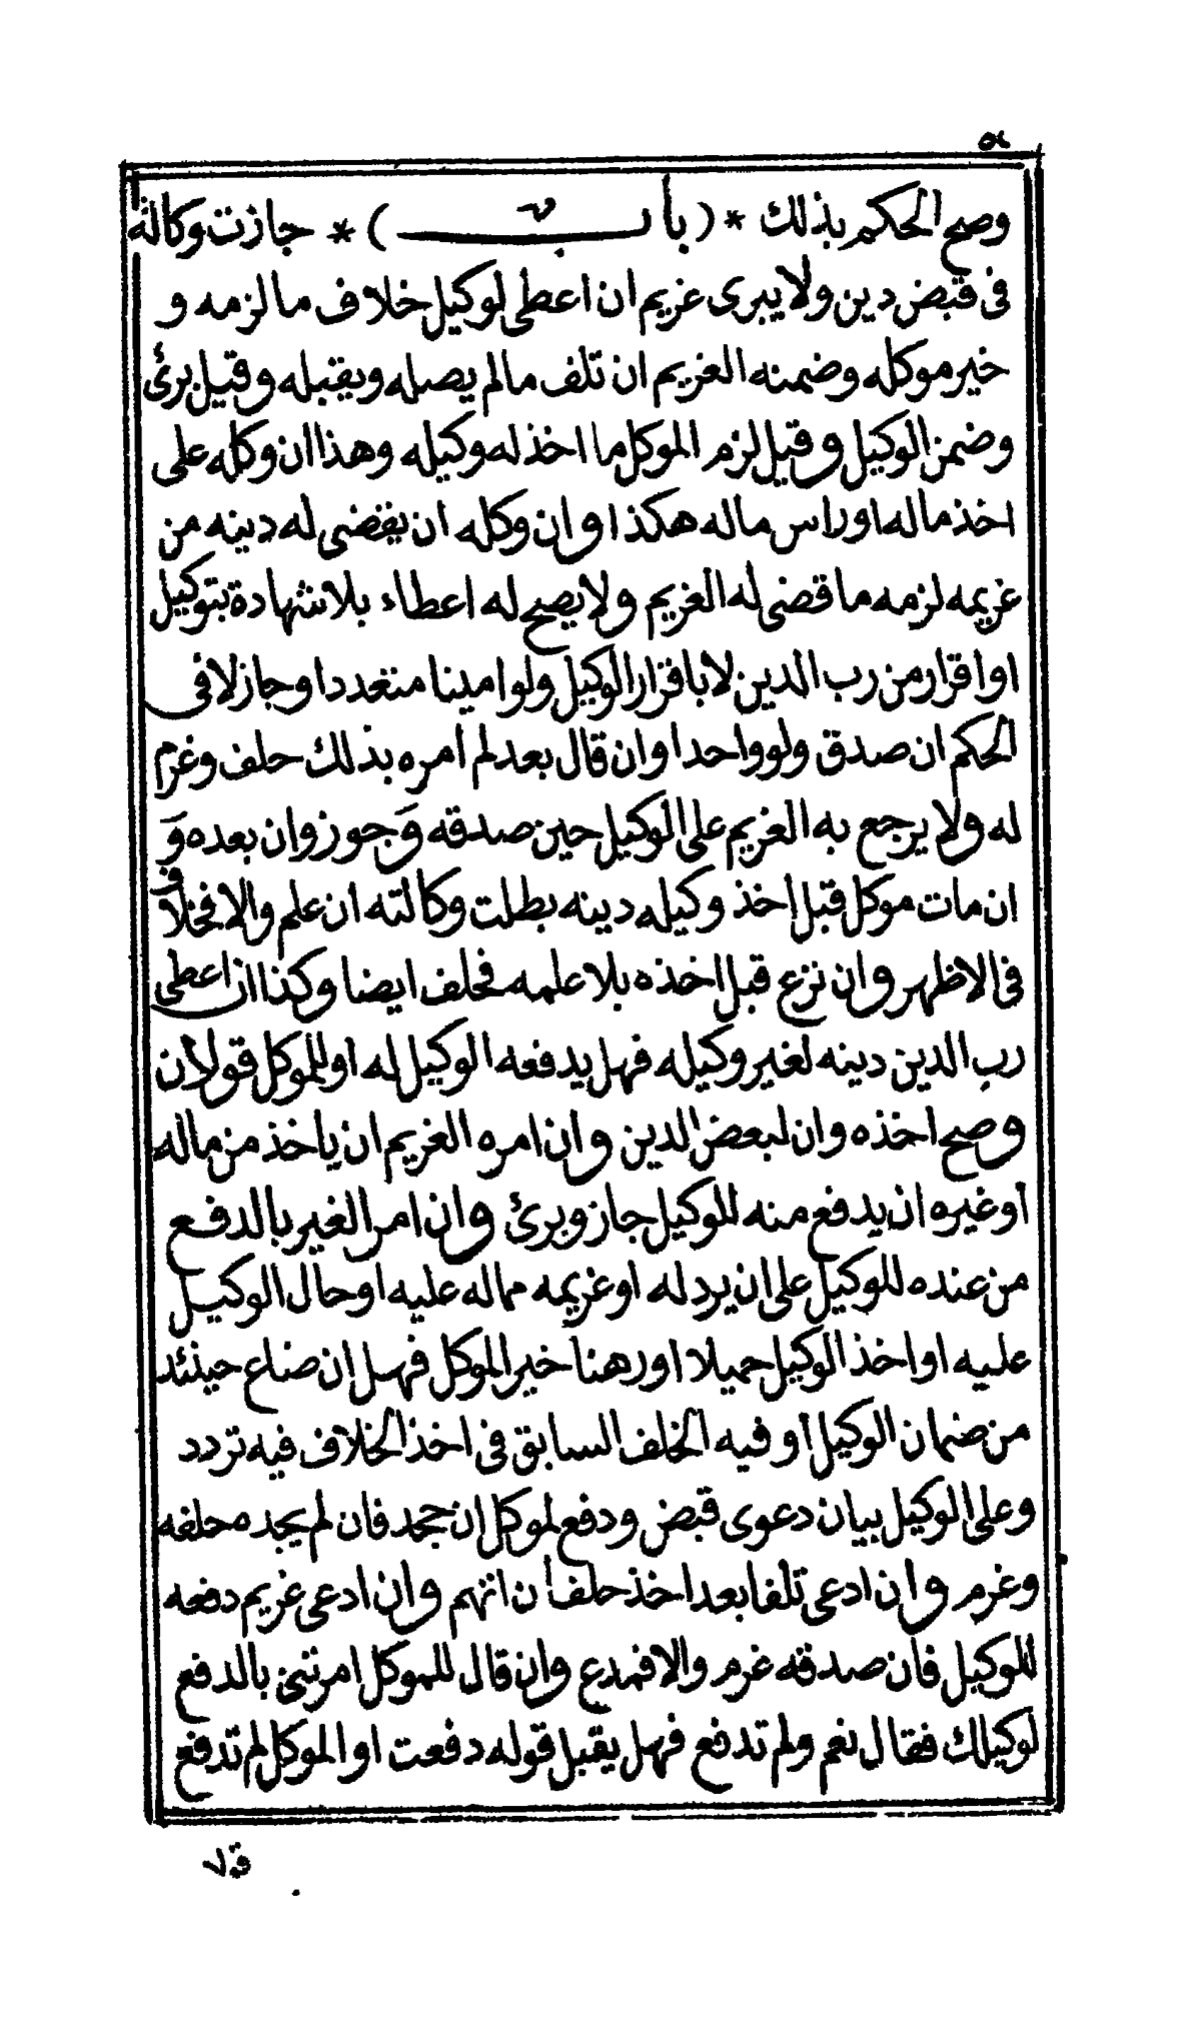 ٥٨
وصح الحكم بذلك * (باب) * جازت وكالة
فى قبض دين ولا يبرى غريم ان اعطى لوكيل خلاف ما لزمه و
خير موكله وضمنه الغريم ان تلف ما لم يصله ويقبله وقيل برئ
وضمن الوكيل وقيل لزم الموكل ما اخذ له وكيله وهذا ان وكله على
اخذ ماله او راس ماله هكذا وان وكله ان يقضى له دينه من
غريمه لزمه ما قضى له الغريم ولا يصح له اعطاء بلا شهادة بتوكيل
او اقرار من رب الدين لا باقرار الوكيل ولو امينا متعددا وجاز لا فى
الحكم ان صدق ولو واحدا وان قال بعد لم امره بذلك حلف وغرم
له ولا يرجع به الغريم على الوكيل حين صدقه وَجوز وان بعده وَ
ان مات موكل قبل أخذ وكيله دينه بطلت وكالته ان علم والا فخلاف
فى الاظهر وان نزع قبل اخذه بلا علمه فخلف ايضا وكذا ان اعطى
رب الدين دينه لغير وكيله فهل يدفعه الوكيل له او للموكل قولان
وصح اخذه وان لبعض الدين وان امره الغريم ان ياخذ من ماله
أو غيره ان يدفع منه للوكيل جاز وبرئ وان امر الغير بالدفع
من عنده للوكيل على ان يرد له او غريمه مماله عليه او حال الوكيل
عليه او اخذ الوكيل حميلا او رهنا خير الموكل فهل إن ضاع حينئد
من ضمان الوكيل أو فيه الخلف السابق فى اخذ الخلاف فيه تردد
وعلى الوكيل بيان دعوى قبض ودفع لموكل إن جحد فان لم يجده حلفه
وغرم وان ادعى تلفا بعد اخذ حلف أن اتهم وان ادعى غريم دفعه
للوكيل فان صدقه غرم والا فمدع وان قال للموكل امرتنى بالدفع
لوكيلك فقال نعم ولم تدفع فهل يقبل قوله دفعت او الموكل لم تدفع
قولا